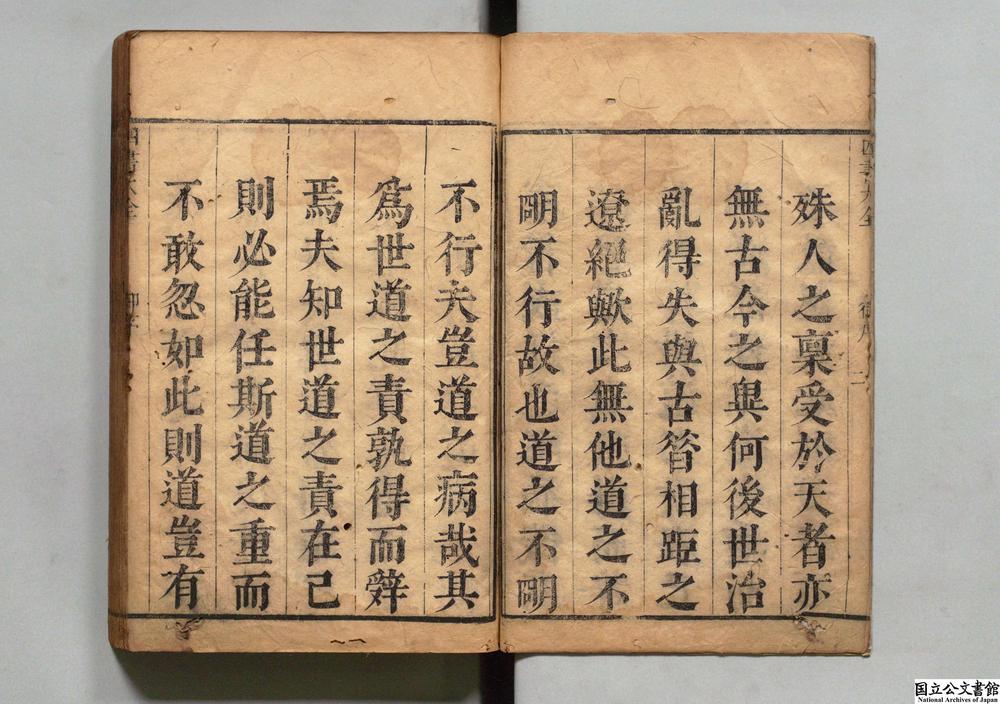 殊人之稟受於天者亦
無古今之異何後世治
亂得失與古昔相距之
遼絕歟此無他道之不
明不行故也道之不明
不行夫豈道之病哉其
爲世道之責孰得而辤
焉夫知世道之責在己
則必能任斯道之重而
不敢忽如此則道豈有
四書大全
国立公文書館
National Archives of Japan